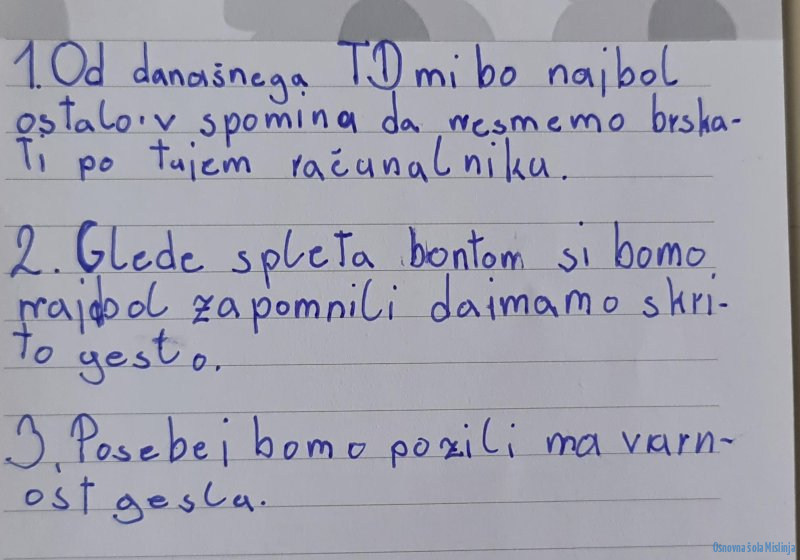 1. Od današnega TD mi bo najbol
ostalo v spomina da nesmemo brska-
ti po tujem računalniku.
2. Glede spleta bontom si bomo
najbol zapomnili daimamo skri-
to gesto.
3. Posebej bomo pozili na varn-
ost gesla.
Osnovna šola Mislinja